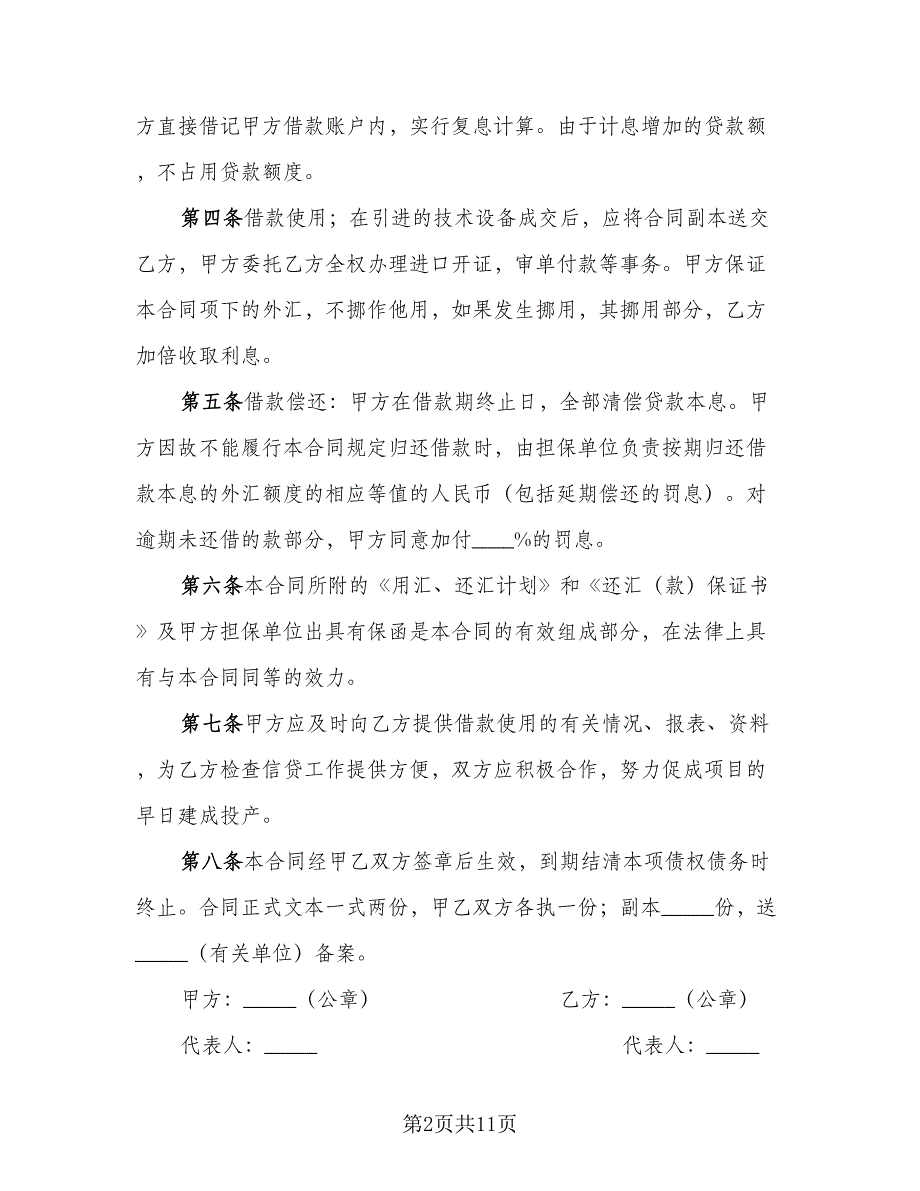 方直接借记甲方借款账户内，实行复息计算。由于计息增加的贷款额
，不占用贷款额度。
第四条借款使用；在引进的技术设备成交后，应将合同副本送交
乙方，甲方委托乙方全权办理进口开证，审单付款等事务。甲方保证
本合同项下的外汇，不挪作他用，如果发生挪用，其挪用部分，乙方
加倍收取利息。
第五条借款偿还：甲方在借款期终止日，全部清偿贷款本息。甲
方因故不能履行本合同规定归还借款时，由担保单位负责按期归还借
款本息的外汇额度的相应等值的人民币（包括延期偿还的罚息）。对
逾期未还借的款部分，甲方同意加付____%的罚息。
第六条本合同所附的《用汇、还汇计划》和《还汇（款）保证书
》及甲方担保单位出具有保函是本合同的有效组成部分，在法律上具
有与本合同同等的效力。
第七条甲方应及时向乙方提供借款使用的有关情况、报表、资料
，为乙方检查信贷工作提供方便，双方应积极合作，努力促成项目的
早日建成投产。
第八条本合同经甲乙双方签章后生效，到期结清本项债权债务时
终止。合同正式文本一式两份，甲乙双方各执一份；副本_____份，送
_____（有关单位）备案。
甲方：_____（公章） 乙方：_____（公章）
代表人：_____ 代表人：_____
第2页共11页